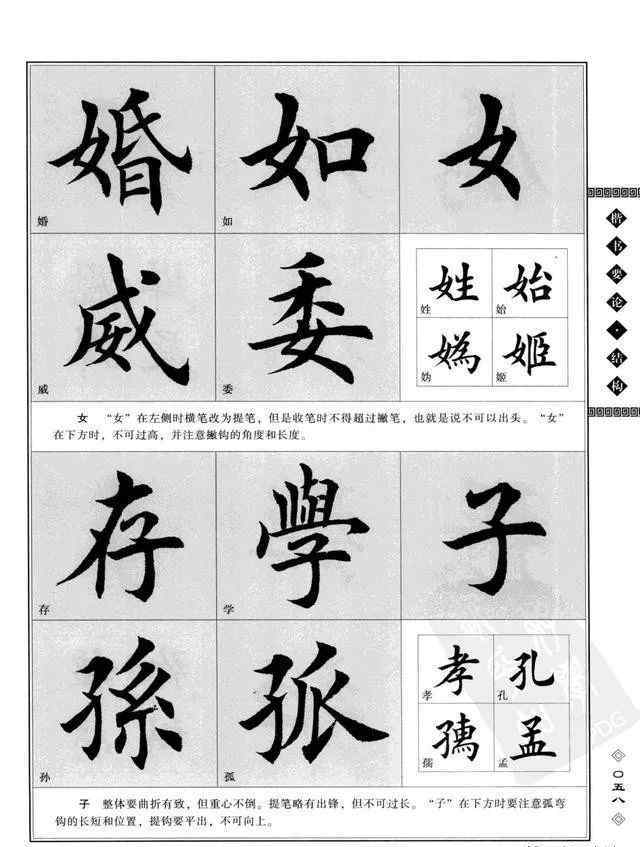 婚 如 女
婚 如
威 委 姓 始
姓 始
媯 姬
威 委 姬
女 “女”在左侧时横笔改为提笔，但是收笔时不得超过撇笔，也就是说不可以出头。“女”
在下方时，不可过高，并注意撇钩的角度和长度。
存 學 子
存 学
孫 孤 孝 孔
孝 孔
孟
孙 孤 孟
子 整体要曲折有致，但重心不倒。提笔略有出锋，但不可过长。“子”在下方时要注意弧弯
钩的长短和位置，提钩要平出，不可向上。
楷书要论·结构
〇五八